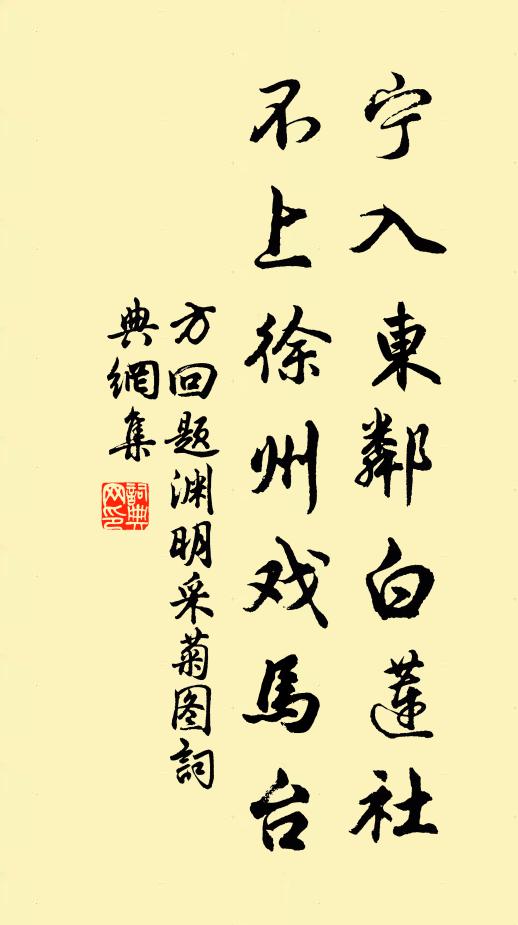 宁入東鄰白蓮社
不上徐州戏馬台
方回题渊明采菊图詞
典網集
詞典
网印